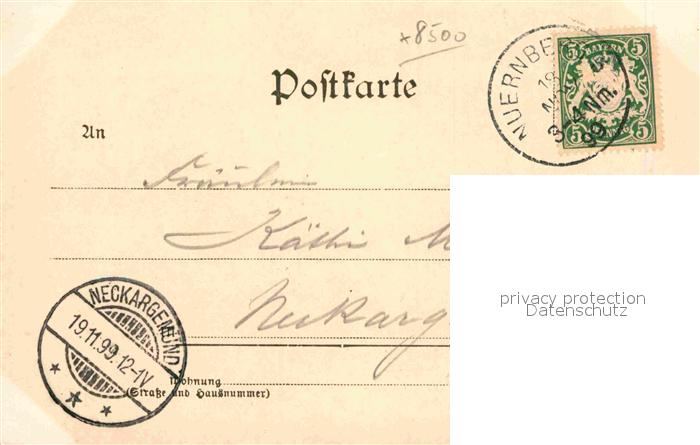 ×8500
NUERNBE
18
3-4Nm.
99
5 BAYERN 5
5 5
Postkarte
An
Fräulein
Käthi M
Neckarg
privacy protection
Datenschutz
NECKARGEMÜND
19.11.99.12-1V
Wohnung
(Straße und Hausnummer)